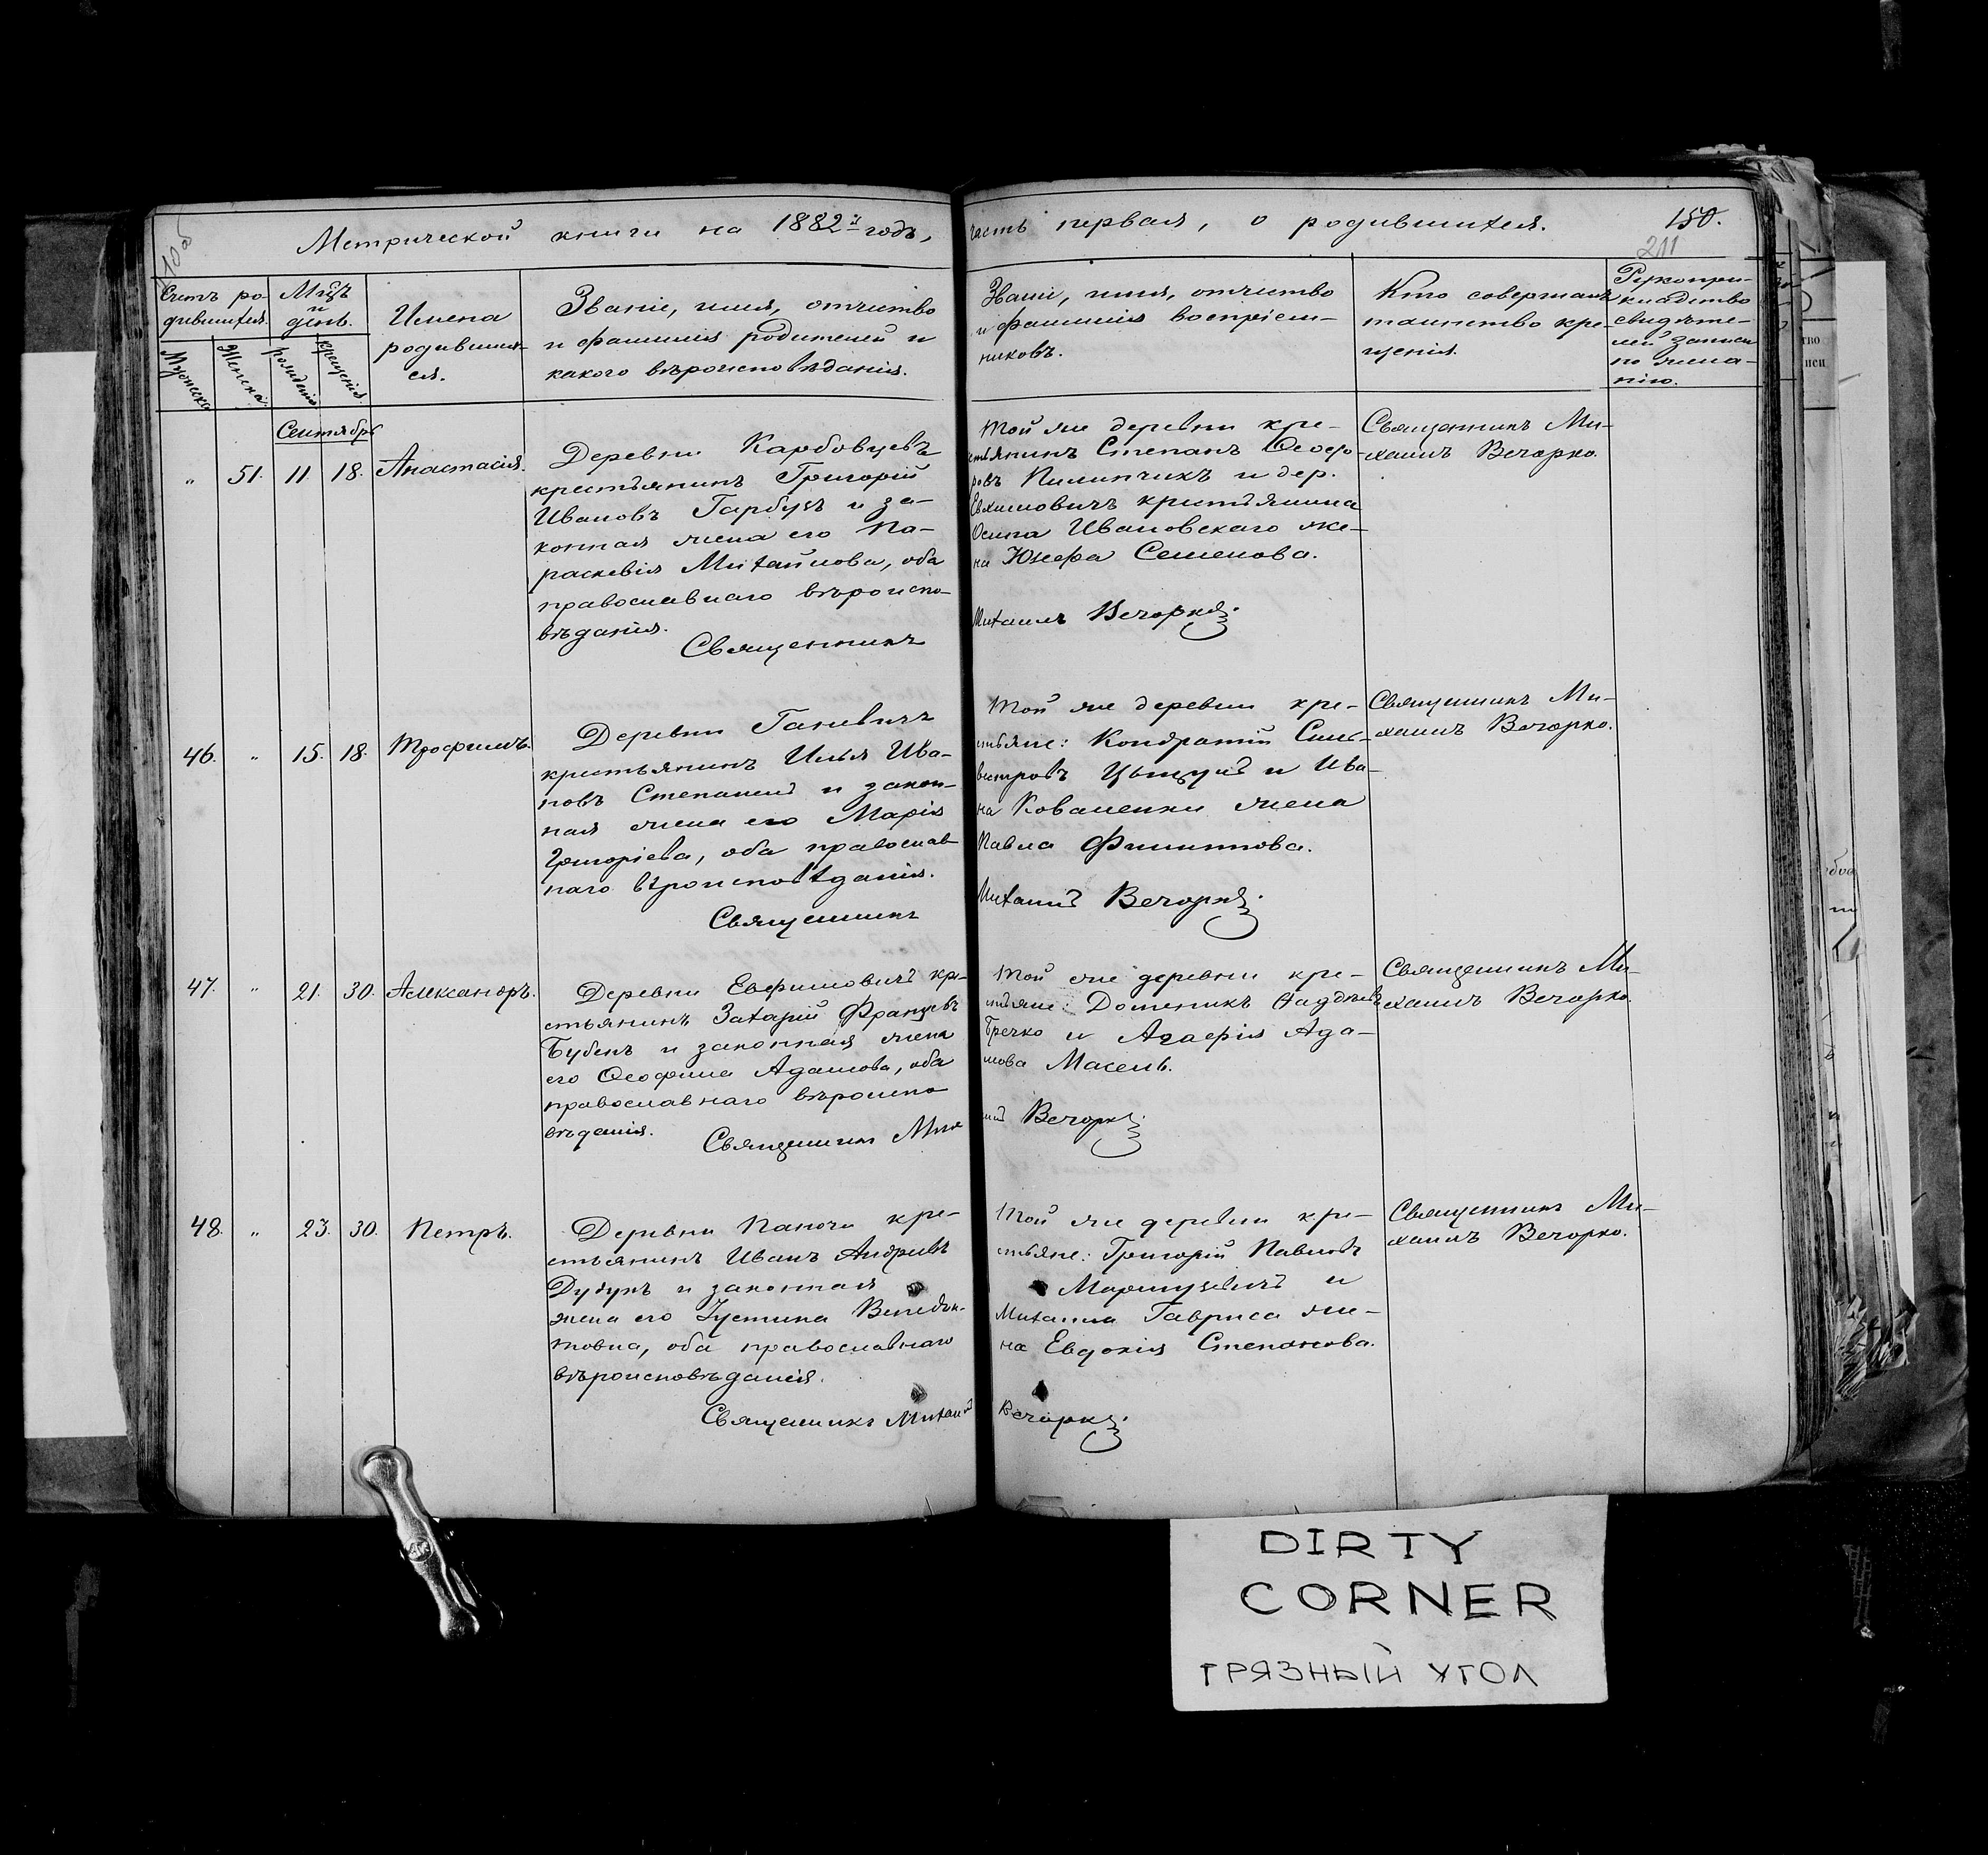 Метрической книги на 1882й годъ,
часть первая, о родившихся.
150.
211
Счетъ ро-
дившихся.
Мужеска
Женска
Мѣсц.
и
день.
рожденія
крещенія
Имена
родивших-
ся.
Званіе, имя, отчество
и фамилія родителей и
какого вѣроисповѣданія.
Званіе, имя, отчество
и фамилія воспріем-
никовъ.
Кто совершалъ
таинство кре-
щенія.
Рукопри-
кладство
свидѣте-
лей записи
по жела-
нію.
Сентябрь
" 51. 11. 18. Анастасія.
Деревни Карбовцевъ
крестьянинъ Григорій
Ивановъ Гарбузъ и за-
конная жена его Па-
раскевія Михайлова, оба
православнаго вѣроиспо-
вѣданія.
Священникъ
Той же деревни кре-
стьянинъ Степанъ Ѳеодо-
ровъ Пилипчикъ и дер.
Евхимовичъ крестьянина
Осипа Ивановскаго же-
на Юзефа Семенова.
Михаилъ Вечорко.
Священникъ Ми-
хаилъ Вечорко.
46. " 15. 18. Трофимъ.
Деревни Ганевичъ
крестьянинъ Илья Ива-
новъ и закон-
ная жена его Марія
Григоріева, оба православ-
наго вѣроисповѣданія.
Священникъ
Той же деревни кре-
стьяне: Кондратій Силь-
вестровъ и Ива-
на Коваленки жена
Павла Филиппова.
Михаилъ Вечорко.
Священникъ Ми-
хаилъ Вечорко.
47. " 21. 30. Александръ.
Деревни Евфимовичъ кре-
стьянинъ Захарій Францевъ
Бубенъ и законная жена
его Ѳеофила Адамова, оба
православнаго вѣроиспо-
вѣданія.
Священникъ Миха
Той же деревни кре-
стьяне: Доминикъ
Гречко и Агафія Ада-
мова Масель.
илъ Вечорко.
Священникъ Ми-
хаилъ Вечорко.
48. " 23. 30. Петръ.
Деревни Паночи кре-
стьянинъ Иванъ Андреевъ
и законная
жена его Іустина Венедик-
товна, оба православнаго
вѣроисповѣданія.
Священникъ Михаилъ
Той же деревни кре-
стьяне: Григорій Павловъ
Марцуевичъ и
Михаила Гавриса же-
на Евдокія Степанова.
Вечорко.
Священникъ Ми-
хаилъ Вечорко.
DIRTY
CORNER
ГРЯЗНЫЙ УГОЛ